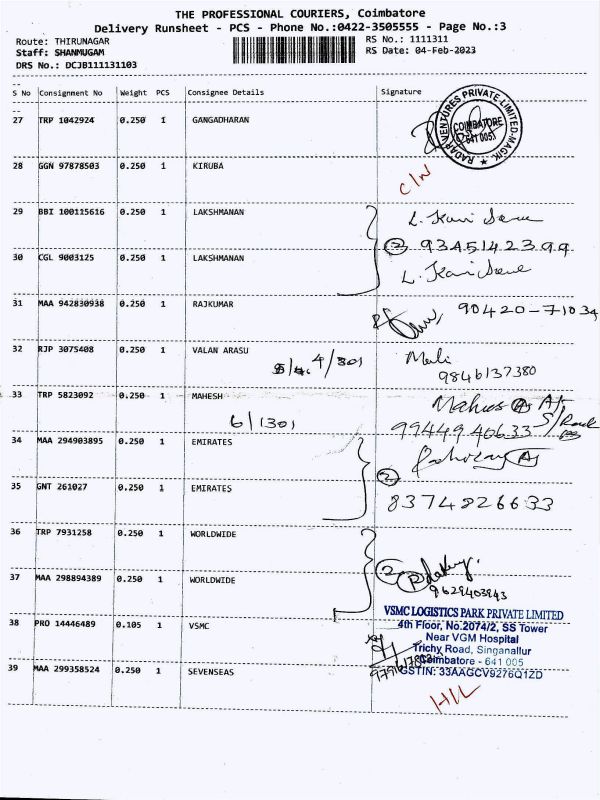 THE PROFESSIONAL COURIERS, Coimbatore
Delivery Runsheet - PCS - Phone No.:0422-3505555 - Page No.:3
Route: THIRUNAGAR
RS No.: 1111311
Staff: SHANMUGAM
RS Date: 04-Feb-2023
DRS No.: DCJB111131103
S No Consignment No Weight PCS Consignee Details Signature
27 TRP 1042924 0.250 1 GANGADHARAN
RADAR VENTURES PRIVATE LIMITED-MAGIK
COIMBATORE
641 005.
28 GGN 97878503 0.250 1 KIRUBA
C/N
29 BBI 100115616 0.250 1 LAKSHMANAN
2 9345142399
30 CGL 9003125 0.250 1 LAKSHMANAN
31 MAA 942830938 0.250 1 RAJKUMAR
90420-71034
32 RJP 3075408 0.250 1 VALAN ARASU
4/301
9846137380
33 TRP 5823092 0.250 1 MAHESH
6/1301
9944940633
34 MAA 294903895 0.250 1 EMIRATES
2
35 GNT 261027 0.250 1 EMIRATES
8374826633
36 TRP 7931258 0.250 1 WORLDWIDE
2
37 MAA 298894389 0.250 1 WORLDWIDE
9629403943
38 PRO 14446489 0.105 1 VSMC
VSMC LOGISTICS PARK PRIVATE LIMITED
4th Floor, No.2074/2, SS Tower
Near VGM Hospital
Trichy Road, Singanallur
Coimbatore - 641 005
GSTIN: 33AAGCV9276Q1ZD
39 MAA 299358524 0.250 1 SEVENSEAS